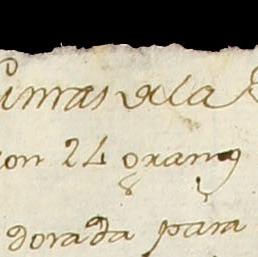 imas de la
con 24 gran
dorada para